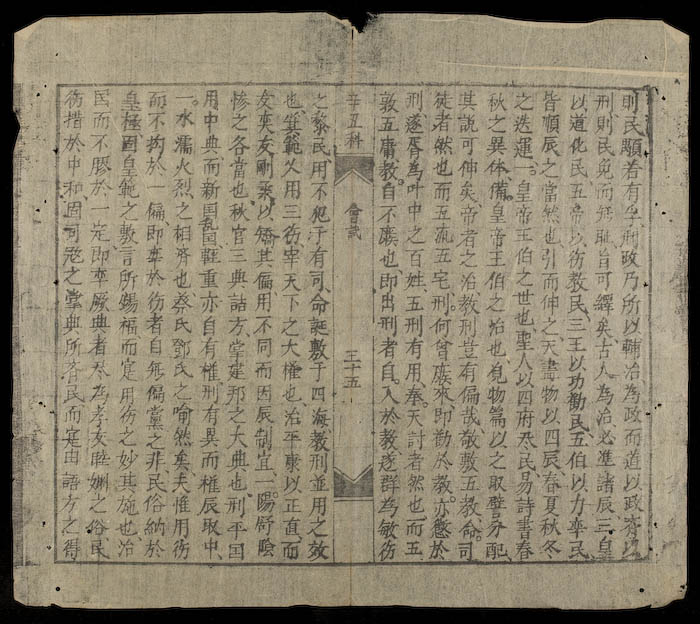 則民顯者有孚刑政乃所以輔治為政而道以政齊以
刑則民免而無恥旨可繹矣古人為治必準諸辰三皇
以道化民五帝以德教民三王以功勸民五伯以力率民
皆順辰之當然也引而伸之天盡物以四辰春夏秋冬
之迭運皇帝王伯之世也聖人以四府尽民易詩書春
秋之異体備皇帝王伯之治也覓物篇以之取譬分配
其說可伸矣帝者之治教刑豈有偏哉敬敷五教命司
徒者然也而五流五宅刑何曾廢來即勸於教亦懲於
刑遂胥為叶中之百姓五刑有用奉天討者然也而五
敦五庸教自不廢也即出刑者自入於教遂群為敏德
辛丑科 會試 三十五
之黎民用不犯于有司命誕敷于四海教刑並用之效
也箕範乂用三德宰天下之大權也治平康以正直而
友爕友剛柔以矯其偏用不同而因辰制宜一陽舒陰
慘之各當也秋官三典詰方掌建邦之大典也刑平国
用中典而新国乱国輕重亦自有權刑有異而權辰取中
一水濡火烈之相濟也蔡氏鄧氏之喻然矣夫惟用德
而不拘於一偏即率於德者自無偏黨之非民俗納於
皇極固皇範之敷言所錫福而寔用德之妙其施也治
民而不膠於一定即率厥典者尽為孝友睦婣之俗民
德措於中和固司寇之掌典所齊民而寔由詰方之得